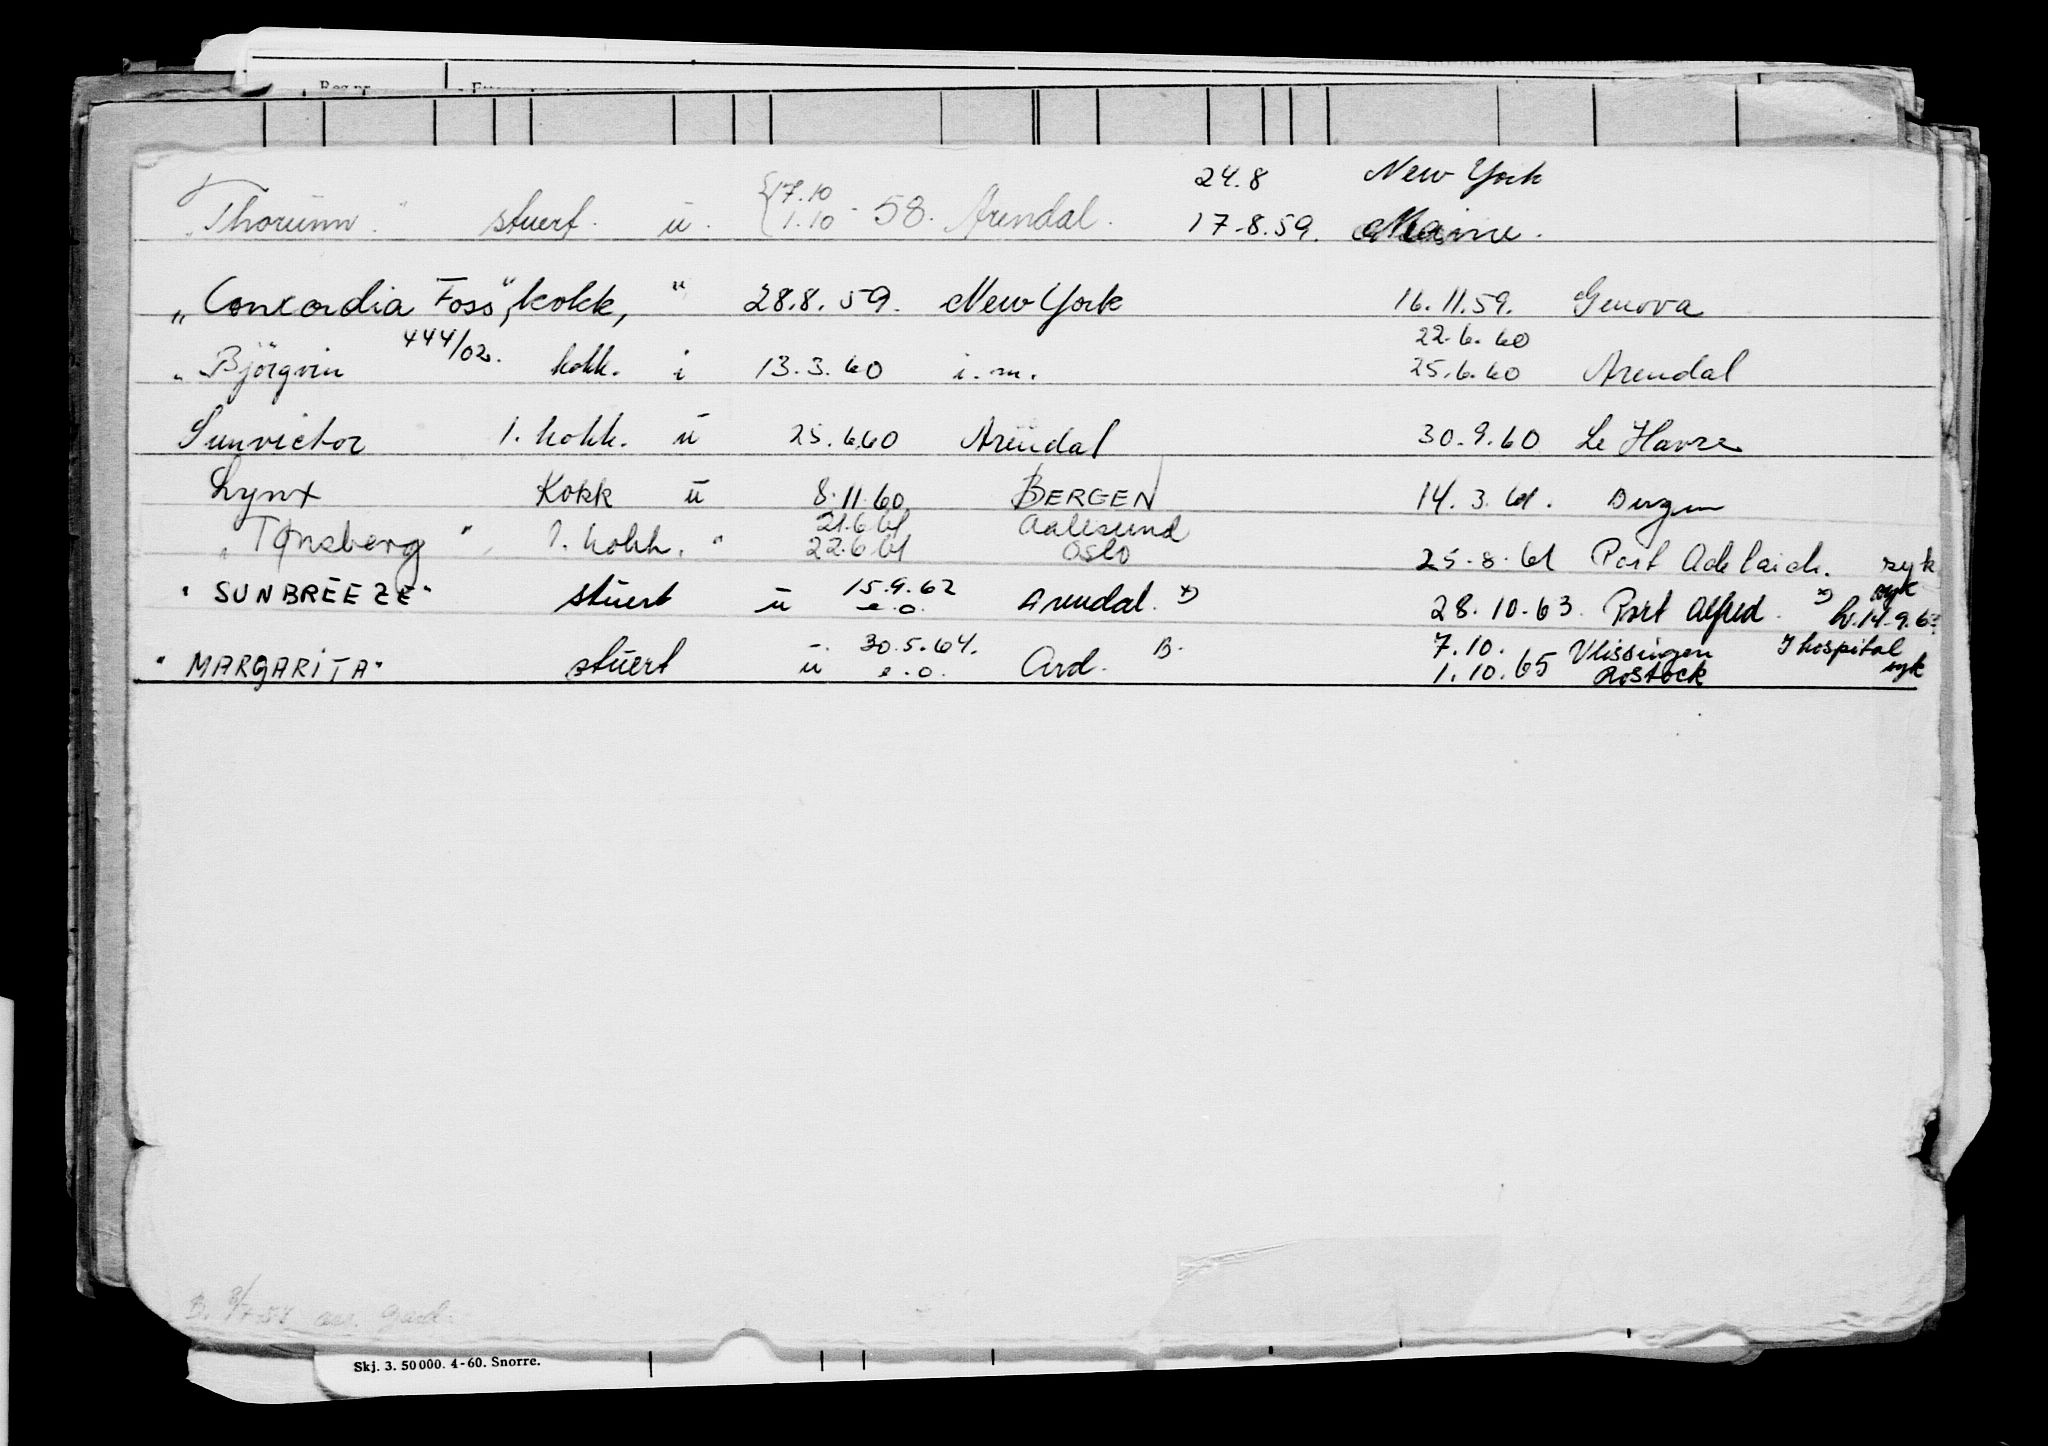 24.8 New York
"Thorunn." stuert. u. {17.10 1.10 - 58. Arendal. 17-8.59. Maine.
"Concordia Foss", kokk, " 28.8.59. New York 16.11.59. Genova
444/02. 22.6.60
"Björgvin kokk. i 13.3.60 i.m. 25.6.60 Arendal
Sunvictor 1. kokk. u 25.6.60 Arendal 30.9.60 Le Havre
Lynx Kokk u 8.11.60 BERGEN 14.3.61. Bergen
21.6.61 Aalesund
"Tønsberg", 1. kokk. " 22.6.61 Oslo 25.8.61 Port Adelaide. syk
15.9.62 syk
"SUNBREEZE" stuert u e.o. Arendal. *) 28.10.63. Port Alfred. *) h.14.9.63
30.5.64. B. 7.10. Vlissingen I hospital
"MARGARITA" stuert u e.o. Ard. 1.10.65 Rostock syk
B. 8/7-58
Skj. 3. 50 000. 4-60. Snorre.